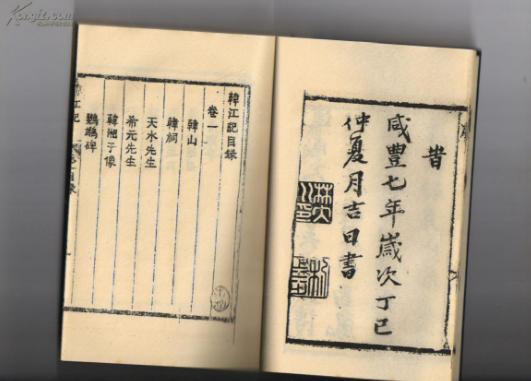 旹
咸豐七年歲次丁巳
仲夏月吉日書
韓江記目錄
卷一
韓山
韓祠
天水先生
希元先生
韓湘子像
鸚鵡碑
江記 目錄